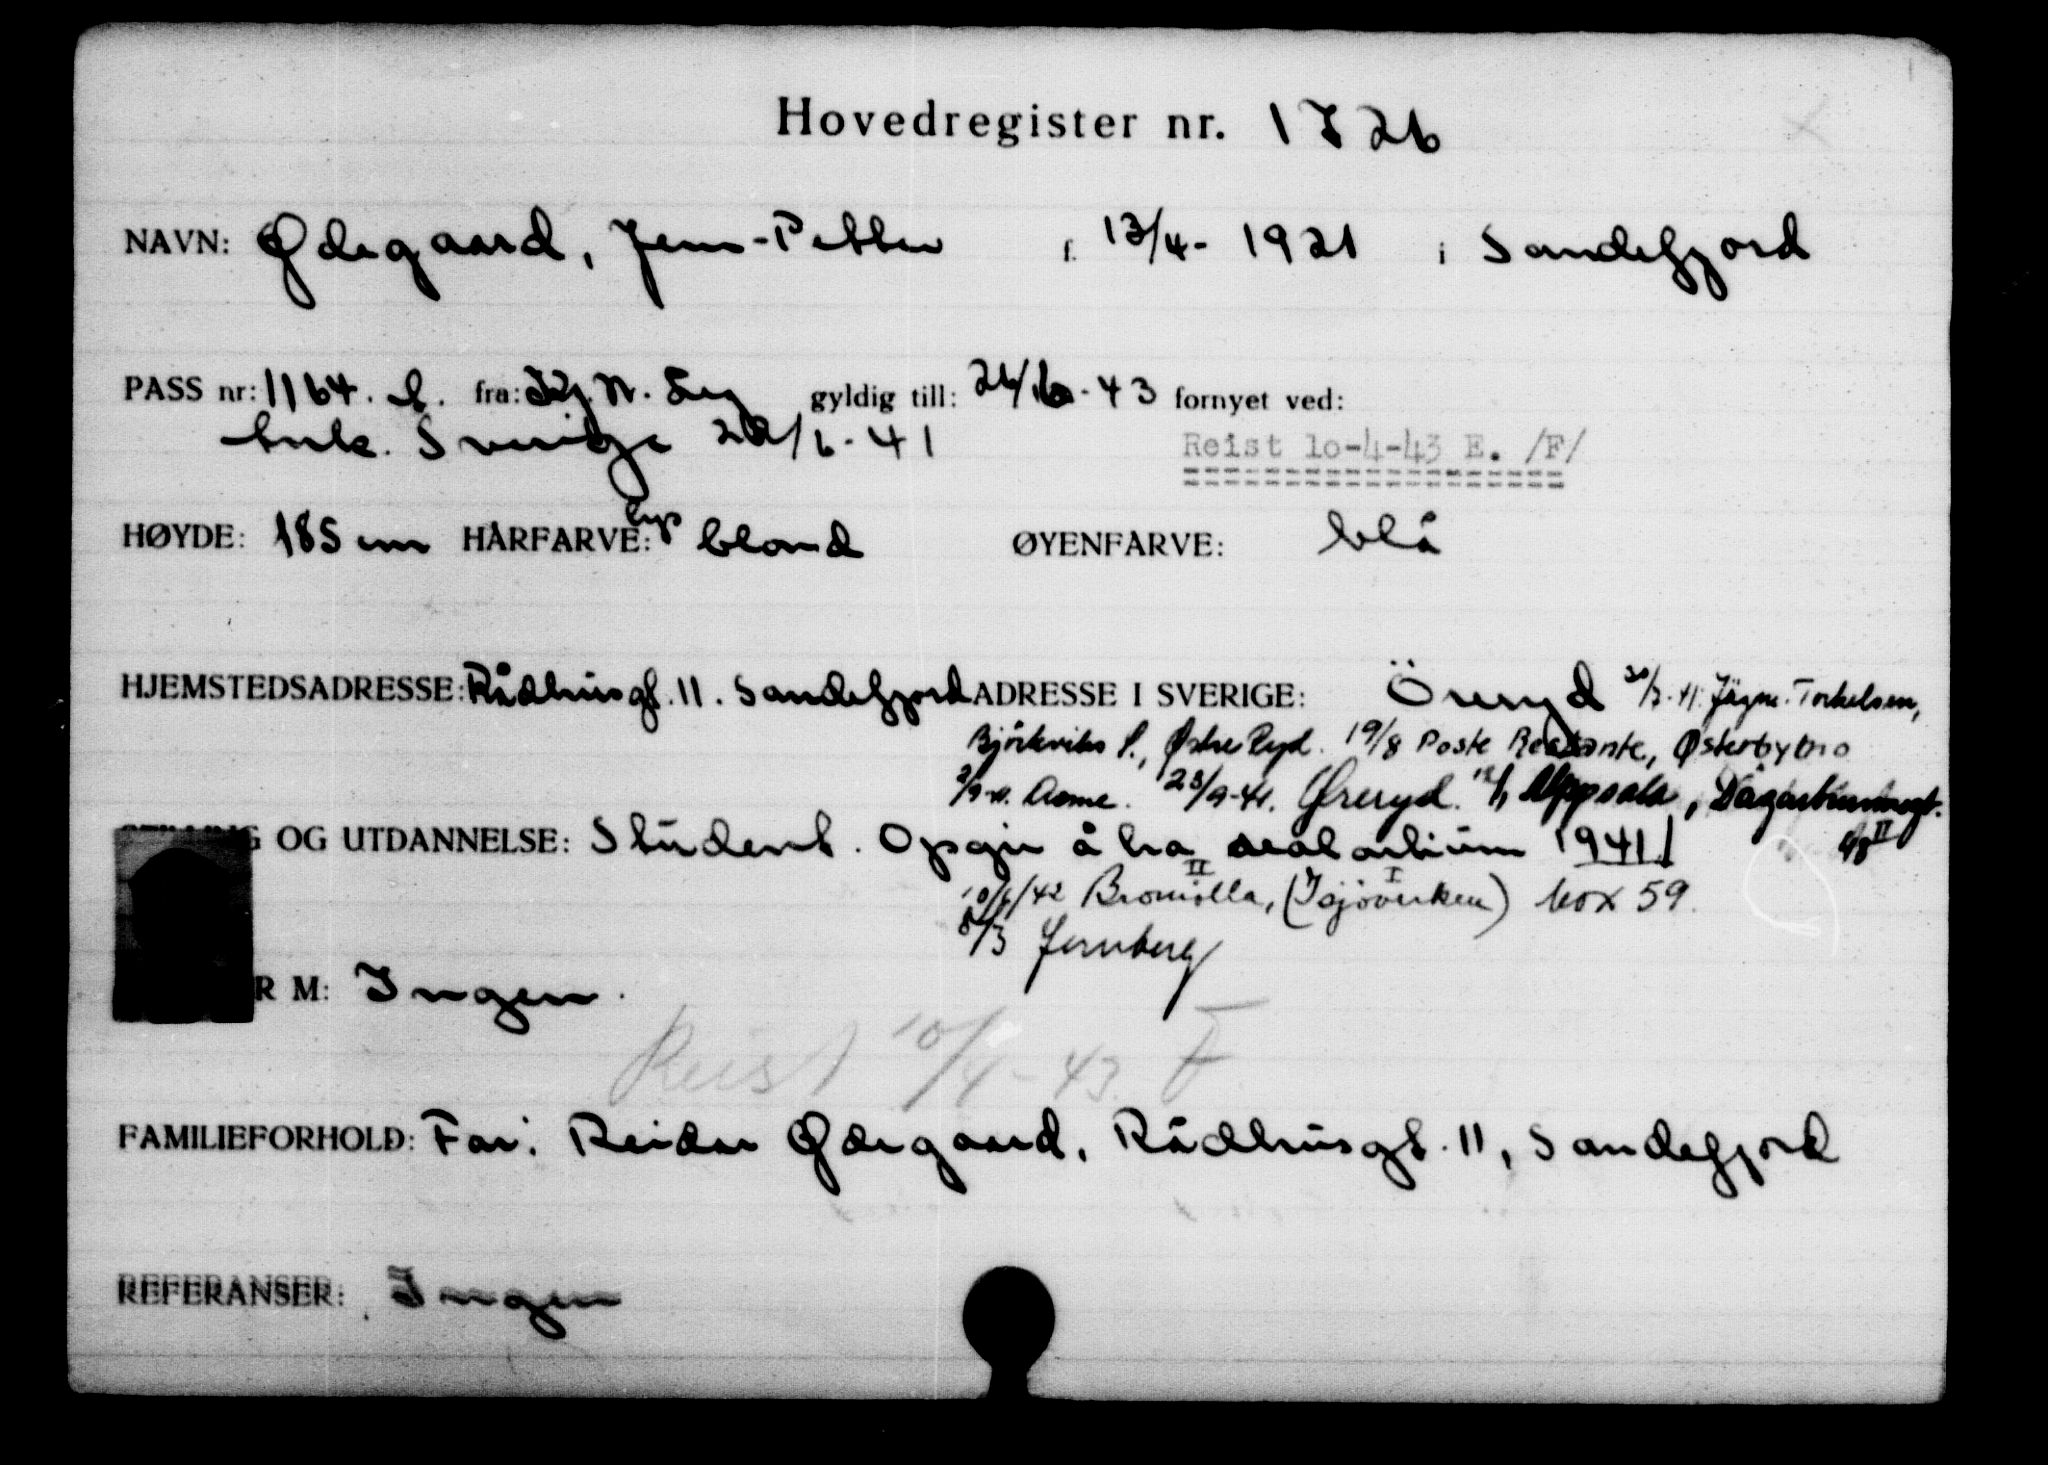 Hovedregister nr. 1726
NAVN: Ødegaard, Jens-Petter f. 13/4- 1921 i Sandefjord
PASS nr: 1164. fra: gyldig till: 26/6-43 fornyet ved:
Sverige 22/6-41
Reist 10-4-43 E. /F/
HØYDE: 185 cm HÅRFARVE: lys blond ØYENFARVE: blå
HJEMSTEDSADRESSE: Rådhusgt. 11. Sandefjord ADRESSE I SVERIGE: Öreryd Torkelsen,
Østre Ryd. 19/8 Poste Restante, Østerbybro
23/9-41. Øreryd. Uppsala,
48 II
G OG UTDANNELSE: Student. Opgir å ha artium 1941!
10/6/42 Bromölla, box 59.
Jernberg
R M: Ingen.
Reist 10/4-43. F
FAMILIEFORHOLD: Far: Reidar Ødegaard, Rådhusgt. 11, Sandefjord
REFERANSER: Ingen